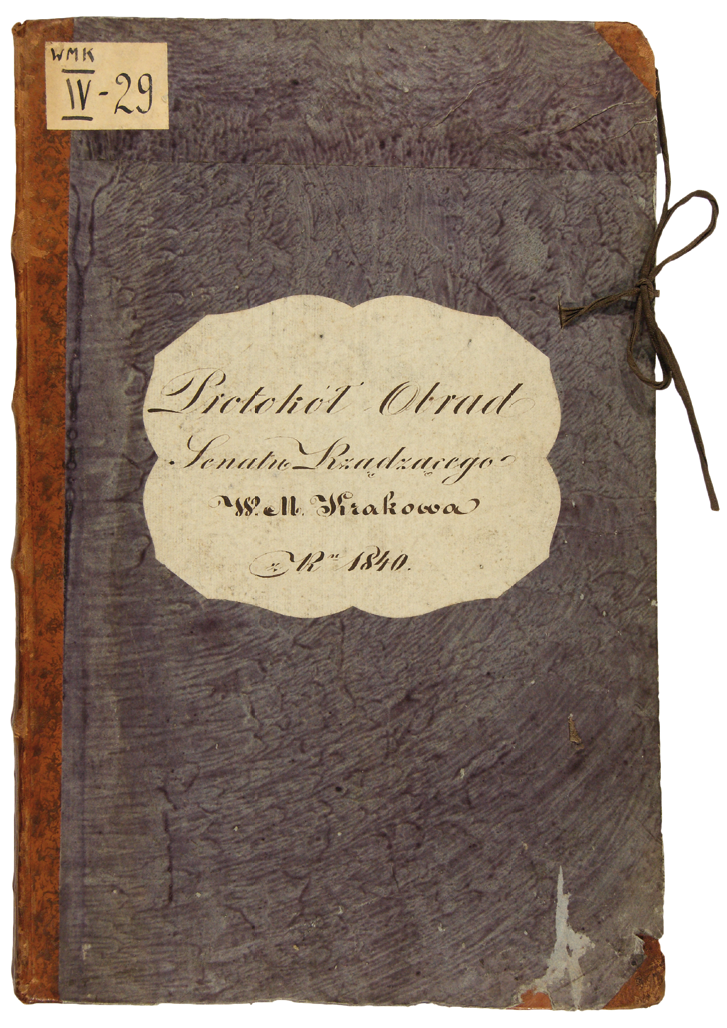 WMK
IV-29
Protokół Obrad
Senatu Rządzącego
W. M. Krakowa
z Ru 1840.